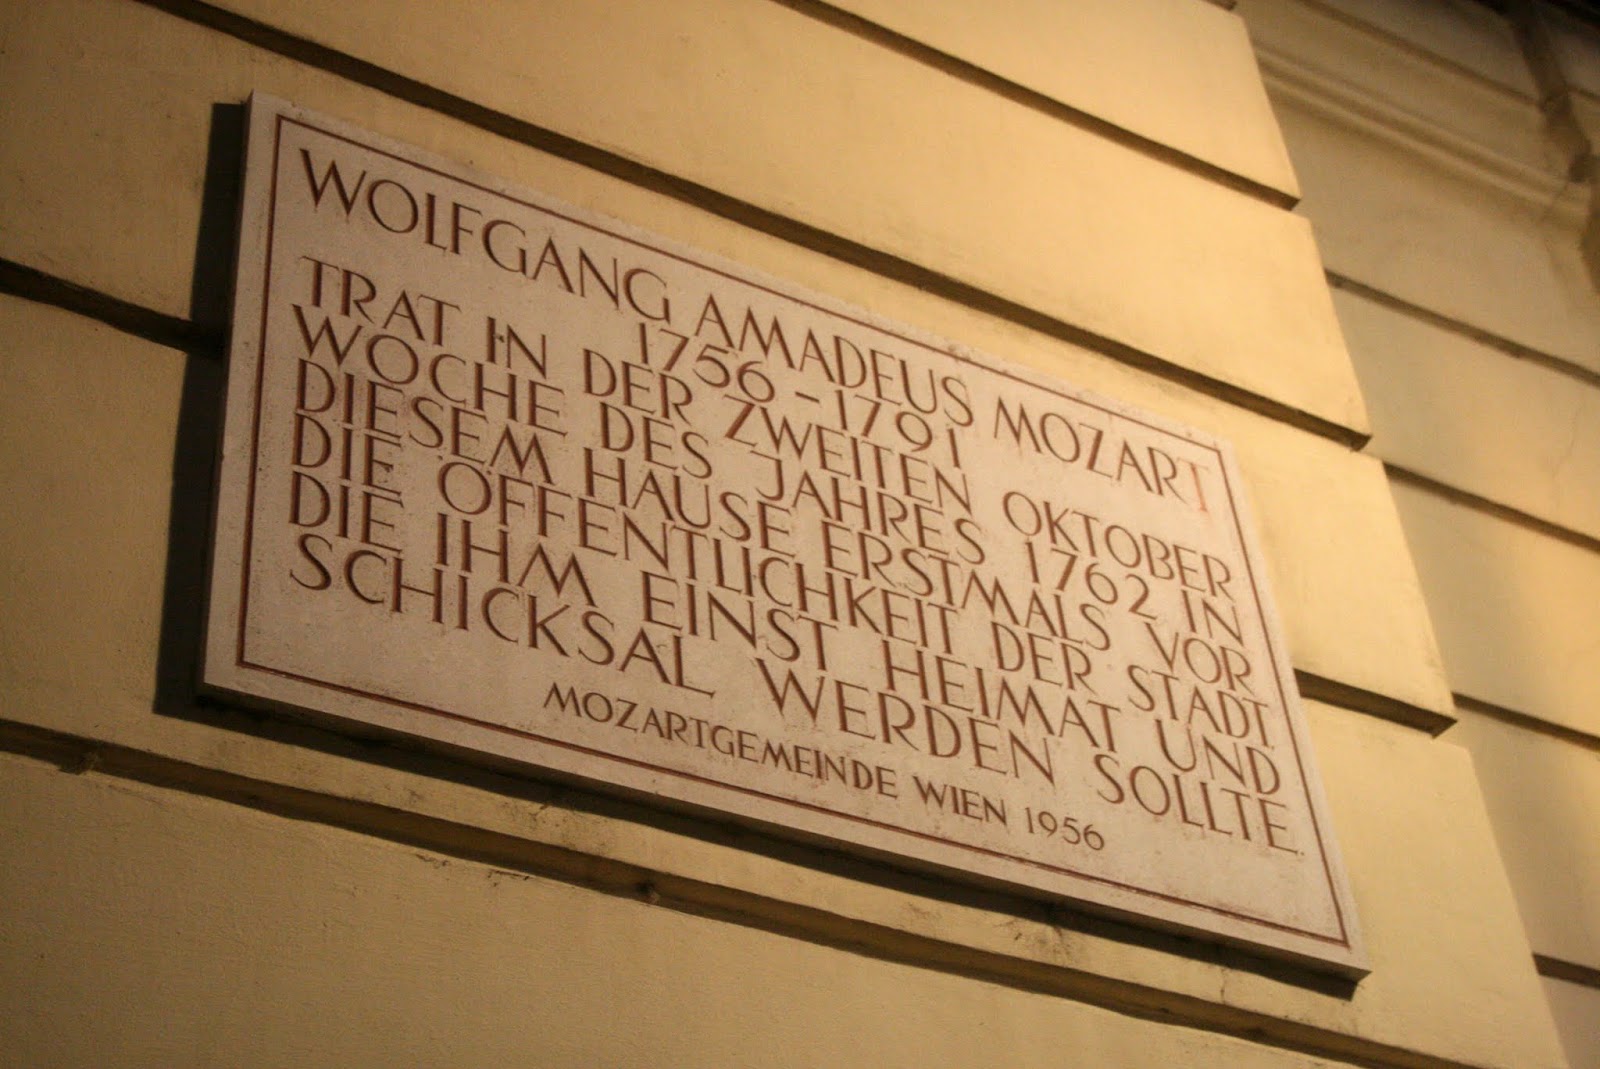 WOLFGANG AMADEUS MOZART
1756-1791
TRAT IN DER ZWEITEN OKTOBER
WOCHE DES JAHRES 1762 IN
DIESEM HAUSE ERSTMALS VOR
DIE ÖFFENTLICHKEIT DER STADT
DIE IHM EINST HEIMAT UND
SCHICKSAL WERDEN SOLLTE.
MOZARTGEMEINDE WIEN 1956